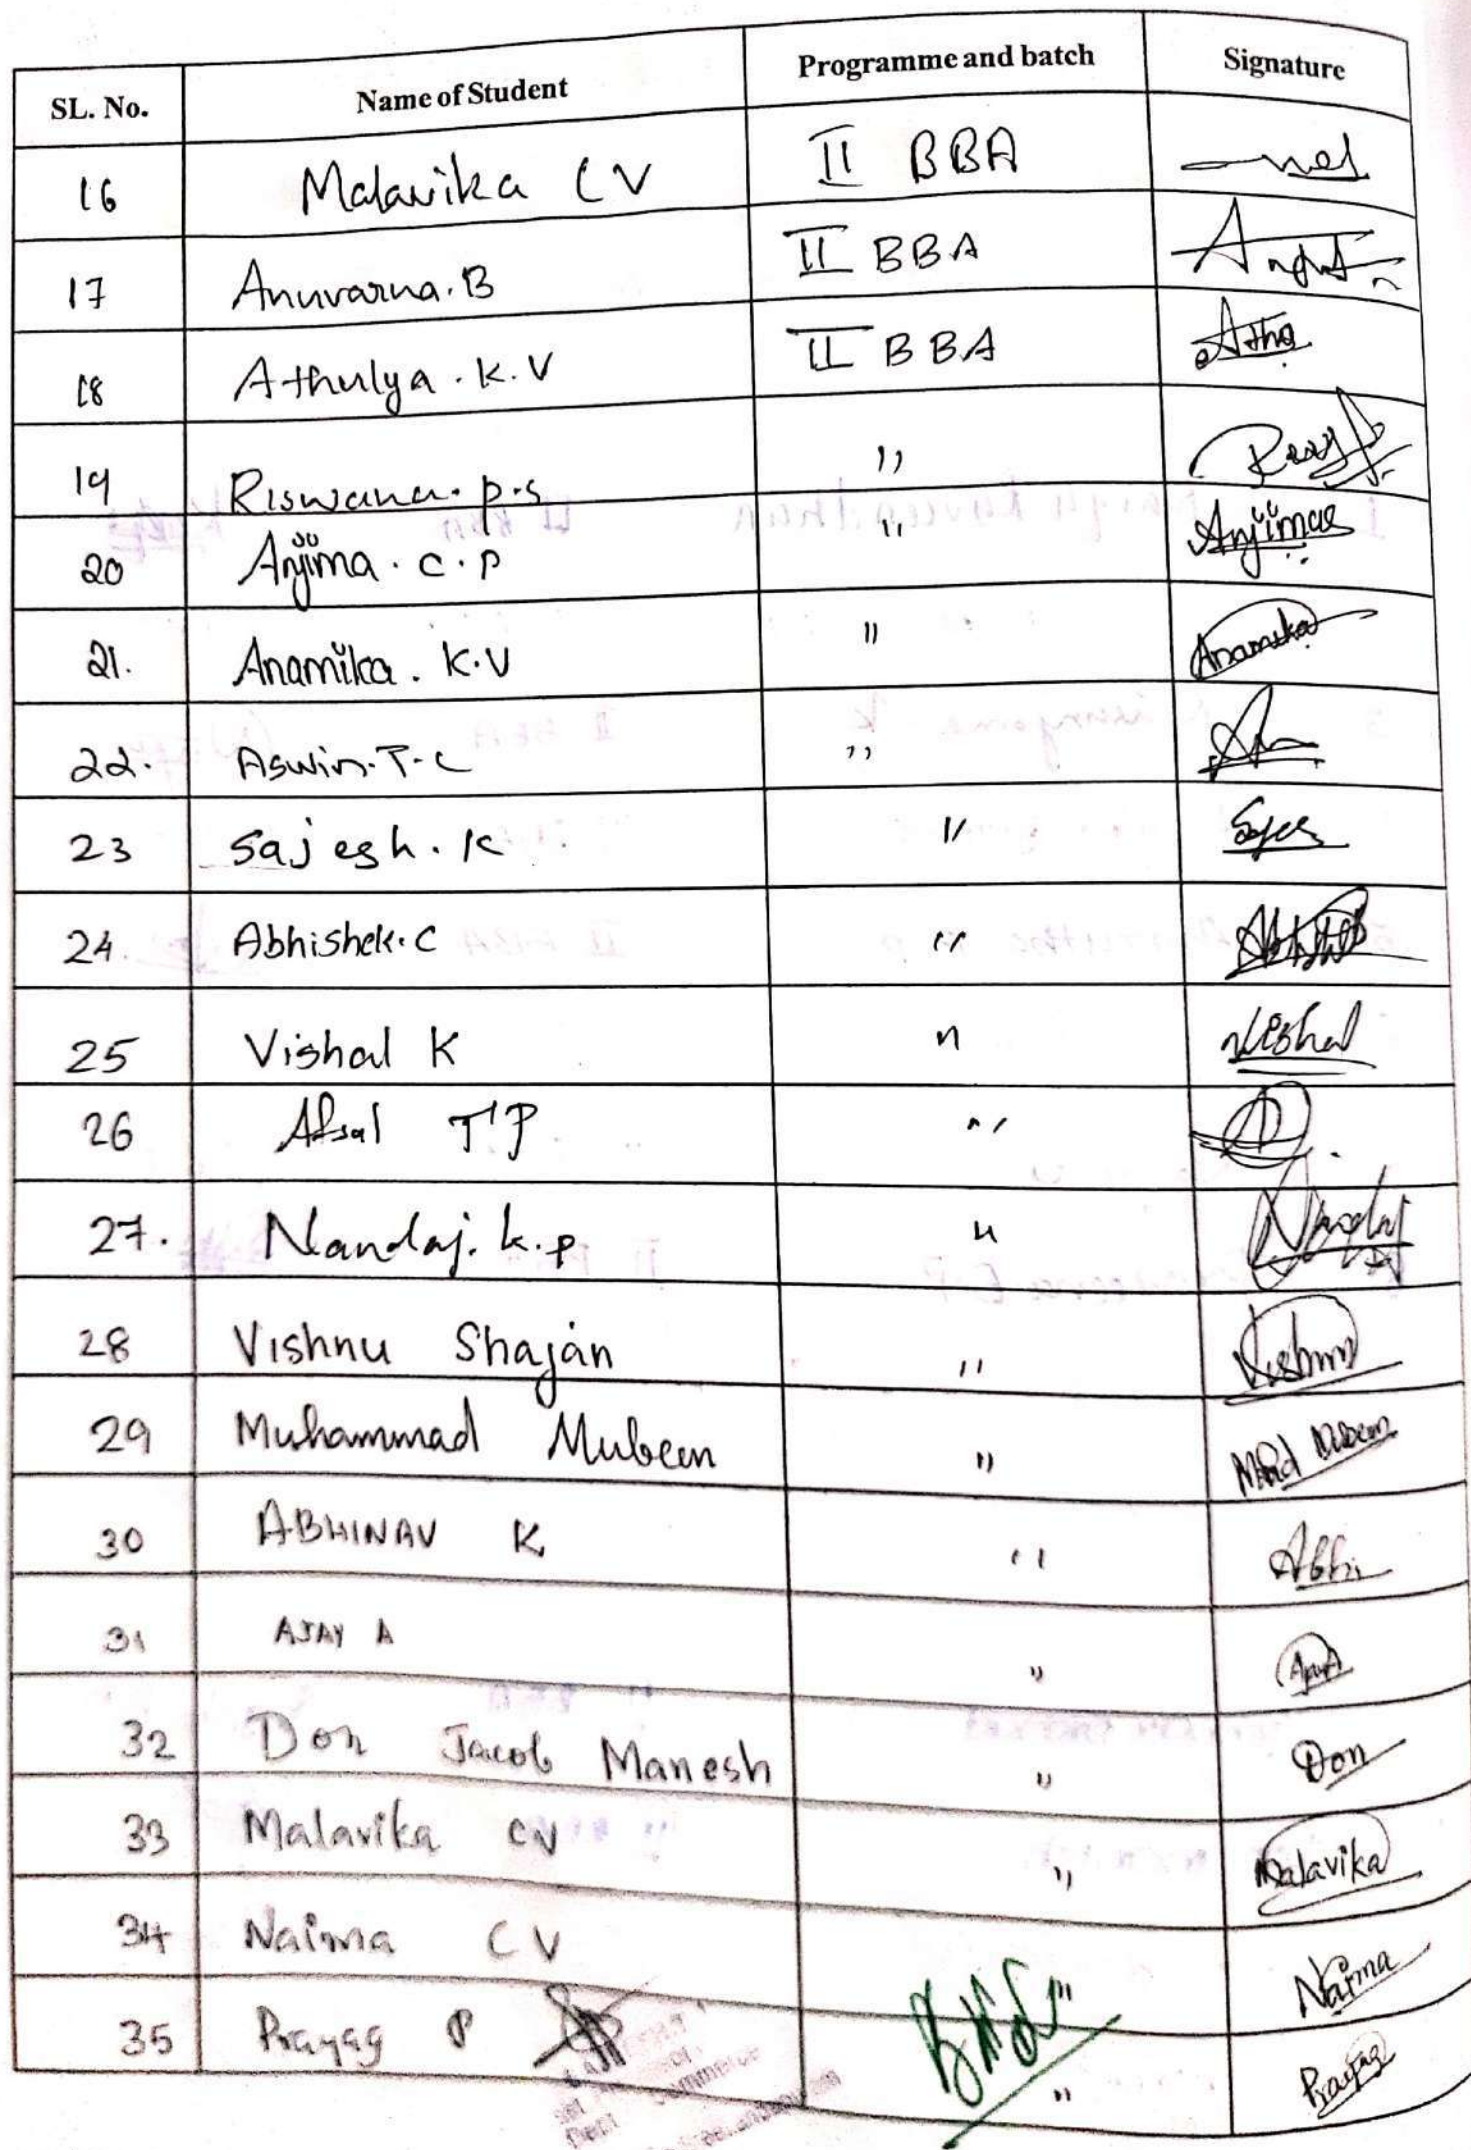 SL. No. Name of Student Programme and batch Signature
16 Malavika C V II BBA
17 Anuvarna. B II BBA
18 Athulya . K. V II BBA Atha
19 Riswana. p.s ,,
20 Anjima . C . P ,, Anjima
21. Anamika . K.V " Anamika
22. Aswin. T. C ,,
23 Sajesh. K "
24. Abhishek. C "
25 Vishal K " Vishal
26 Afsal T P "
27. Nandaj. k.p " Nandaj
28 Vishnu Shajan " Vishnu
29 Muhammad Mubeen " Mhd Mubeen
30 ABHINAV K " Abhi
31 AJAY A "
32 Don Jacob Manesh " Don
33 Malavika CV " Malavika
34 Naima C V " Naima
35 Prayag P " Prayag